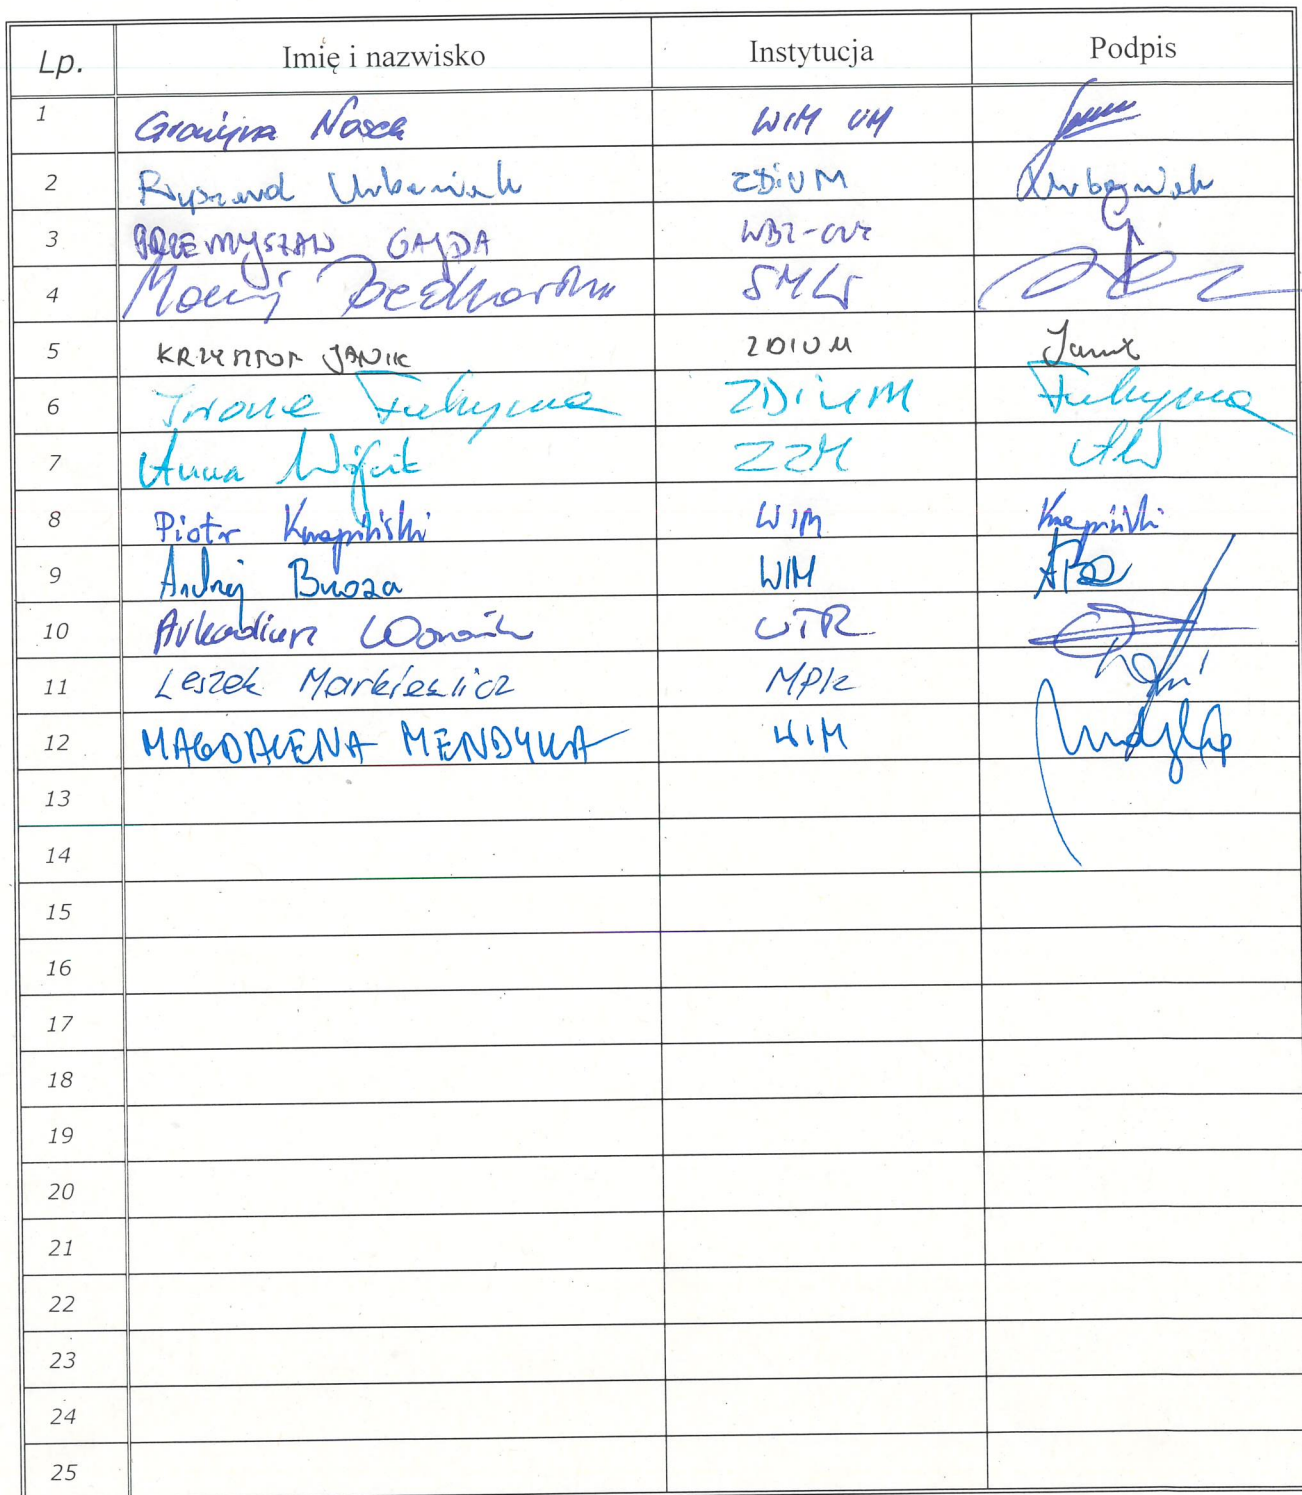 Lp. Imię i nazwisko Instytucja Podpis
1 Grażyna Nosek WIM UM
2 Ryszard Urbaniak ZDiUM Urbaniak
3 PRZEMYSŁAW GAJDA WBZ-CUZ
4 Maciej SMW
5 KRZYSZTOF JANIK ZDIUM Janik
6 Iwona ZDiUM
7 Anna Wójcik ZZM AW
8 Piotr Knapiński WIM Knapiński
9 Andrzej Brzoza WIM
10 Arkadiusz UTR
11 Leszek Markiewicz MPK
12 MAGDALENA MENDYKA WIM
13
14
15
16
17
18
19
20
21
22
23
24
25